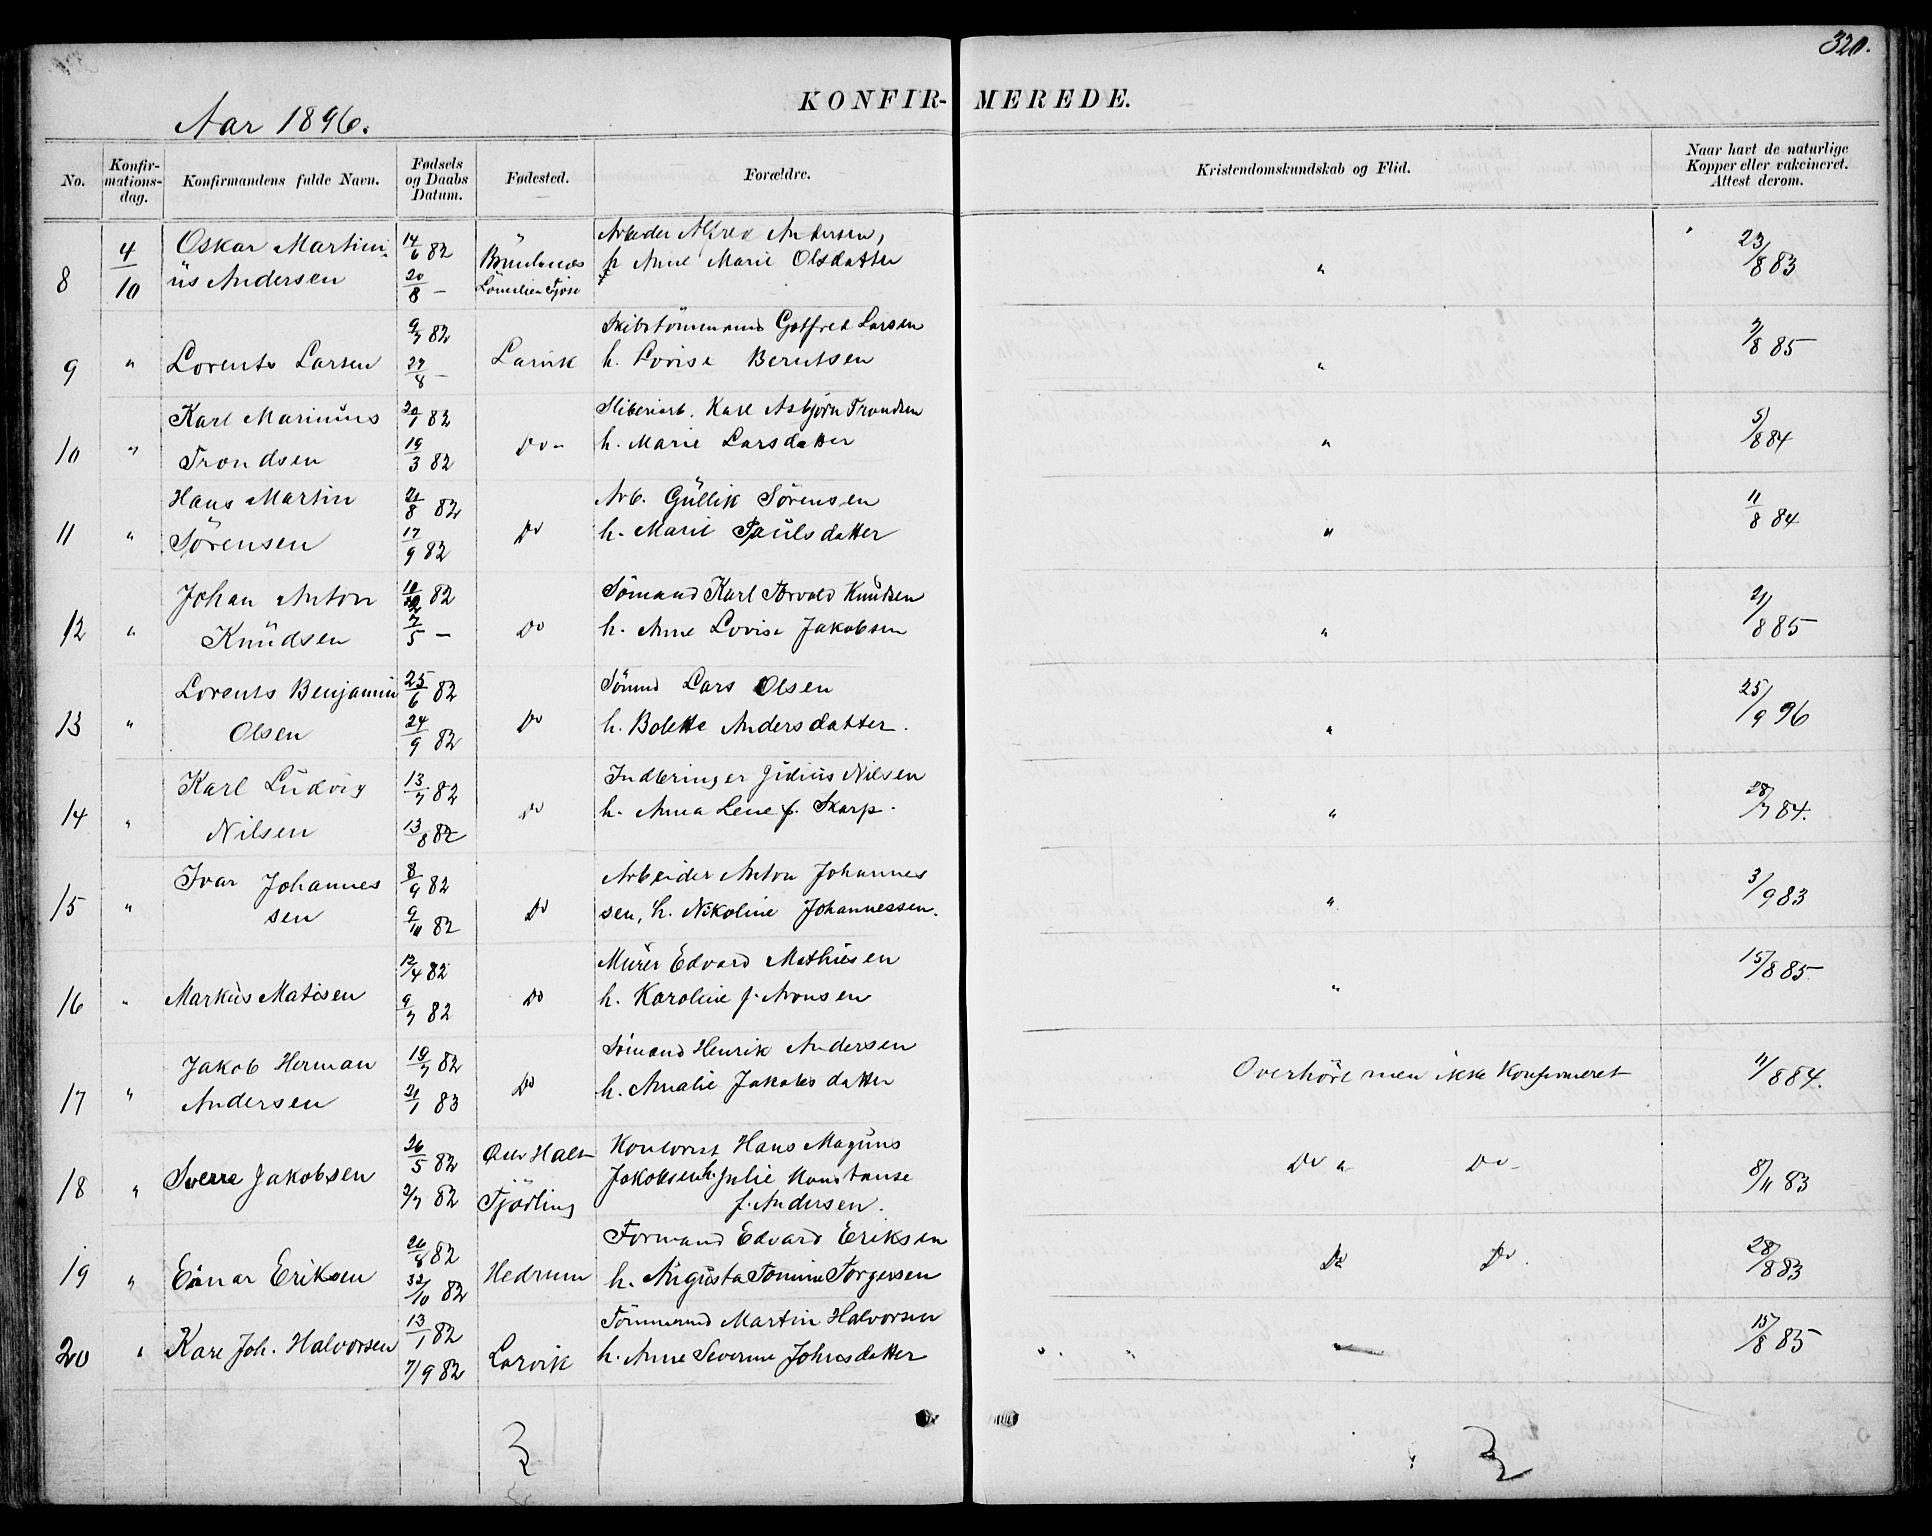 320.
KONFIR-MEREDE.
Aar 1896.
No. Konfir-mations-dag. Konfirmandens fulde Navn. Fødsels og Daabs Datum. Fødested. Forældre. Kristendomskundskab og Flid. Naar havt de naturlige Kopper eller vakcineret. Attest derom.
Oskar Martini- 14/6 82 Arbeider Alfred Andersen, 23/8 83
8 4/10 us Andersen 20/8 — h. Anne Marie Olsdatter "
9/7 82 Skibstømmermand Gotfred Larsen
9 " Lorents Larsen 27/8 — Larvik h. Lovise Berntsen " 7/8 85
Karl Marinius 20/1 82 Sliberiarb. Karl Asbjørn Trondsen
10 " Trondsen 19/3 82 Do " h. Marie Larsdatter " 5/8 84
Hans Martin 21/8 82 Arb. Güllik Sörensen
11 " Sörensen 17/9 82 Do h. Marie Paulsdatter " 11/8 84
Johan Anton 82 Sömand Karl Torvald Knudsen
12 " Knüdsen 7/5 — Do h. Anne Lovise Jakobsen " 21/8 85
Lorents Benjamin 25/6 82 Sömnd Lars Olsen
13 " Olsen 24/9 82 Do h. Bolette Andersdatter. " 25/9 96
Karl Ludvig 13/7 82 Indbringer Jidius Nilsen
14 " Nilsen 13/8 82 Do h. Anna Lene f. Skarp. " 28/7 84.
Ivar Johannes 8/9 82 Arbeider Anton Johannes
15 " sen 9/10 82 Do sen, h. Nikoline Johannessen. " 3/9 83
12/4 82 Murer Edvard Mathiesen
16 " Markus Matisen 9/7 82 Do h. Karoline f. Aronsen " 15/8 85
Jakob Herman 19/7 82 Sömand Henrik Andersen
17 " Andersen 21/1 83 Do h. Amalie Jakobsdatter Overhört men ikke Konfirmeret 11/8 84.
26/5 82 Kontorist Hans Magnus
18 " Sverre Jakobsen 2/7 82 Tjödling Jakobsen h. Julie Konstanse Do " Do 8/11 83
f. Andersen.
26/8 82 Formand Edvard Eriksen
19 " Einar Eriksen /10 82 Hedrum h. Augusta Tomine Torgersen Do Do 28/8 83
13/1 82 Tömmermd Martin Halvorsen
20 " Karl Joh. Halvorsen 7/9 82 Larvik h. Anne Severine Johnsdatter " " 15/8 85